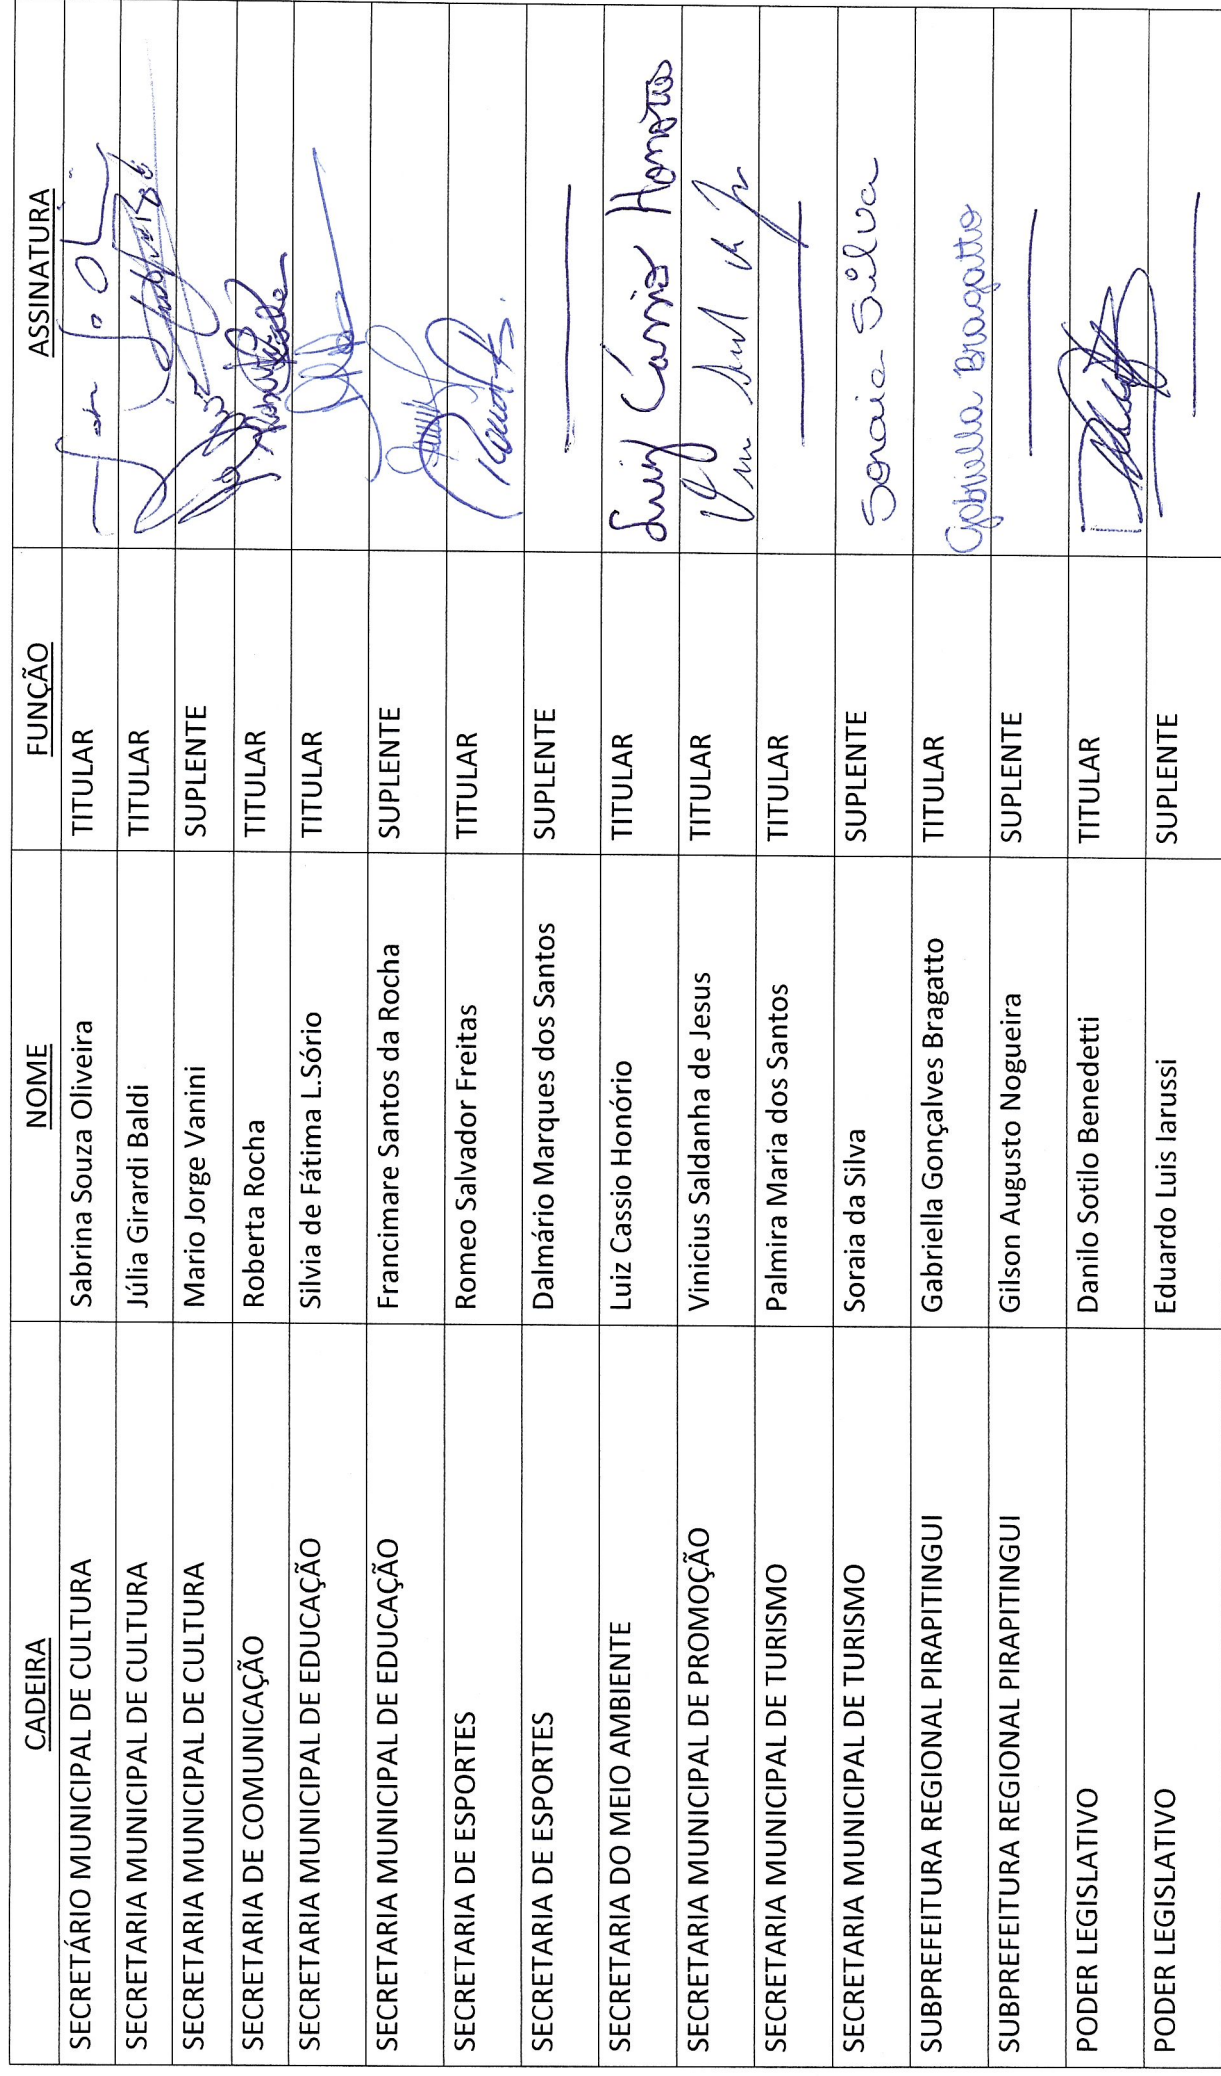 CADEIRA NOME FUNÇÃO ASSINATURA
SECRETÁRIO MUNICIPAL DE CULTURA Sabrina Souza Oliveira TITULAR
SECRETARIA MUNICIPAL DE CULTURA Júlia Girardi Baldi TITULAR
SECRETARIA MUNICIPAL DE CULTURA Mario Jorge Vanini SUPLENTE
SECRETARIA DE COMUNICAÇÃO Roberta Rocha TITULAR
SECRETARIA MUNICIPAL DE EDUCAÇÃO Silvia de Fátima L.Sório TITULAR
SECRETARIA MUNICIPAL DE EDUCAÇÃO Francimare Santos da Rocha SUPLENTE
SECRETARIA DE ESPORTES Romeo Salvador Freitas TITULAR
SECRETARIA DE ESPORTES Dalmário Marques dos Santos SUPLENTE
SECRETARIA DO MEIO AMBIENTE Luiz Cassio Honório TITULAR Luiz Cassio Honório
SECRETARIA MUNICIPAL DE PROMOÇÃO Vinicius Saldanha de Jesus TITULAR
SECRETARIA MUNICIPAL DE TURISMO Palmira Maria dos Santos TITULAR
SECRETARIA MUNICIPAL DE TURISMO Soraia da Silva SUPLENTE Soraia Silva
SUBPREFEITURA REGIONAL PIRAPITINGUI Gabriella Gonçalves Bragatto TITULAR Gabriella Bragatto
SUBPREFEITURA REGIONAL PIRAPITINGUI Gilson Augusto Nogueira SUPLENTE
PODER LEGISLATIVO Danilo Sotilo Benedetti TITULAR
PODER LEGISLATIVO Eduardo Luis Iarussi SUPLENTE